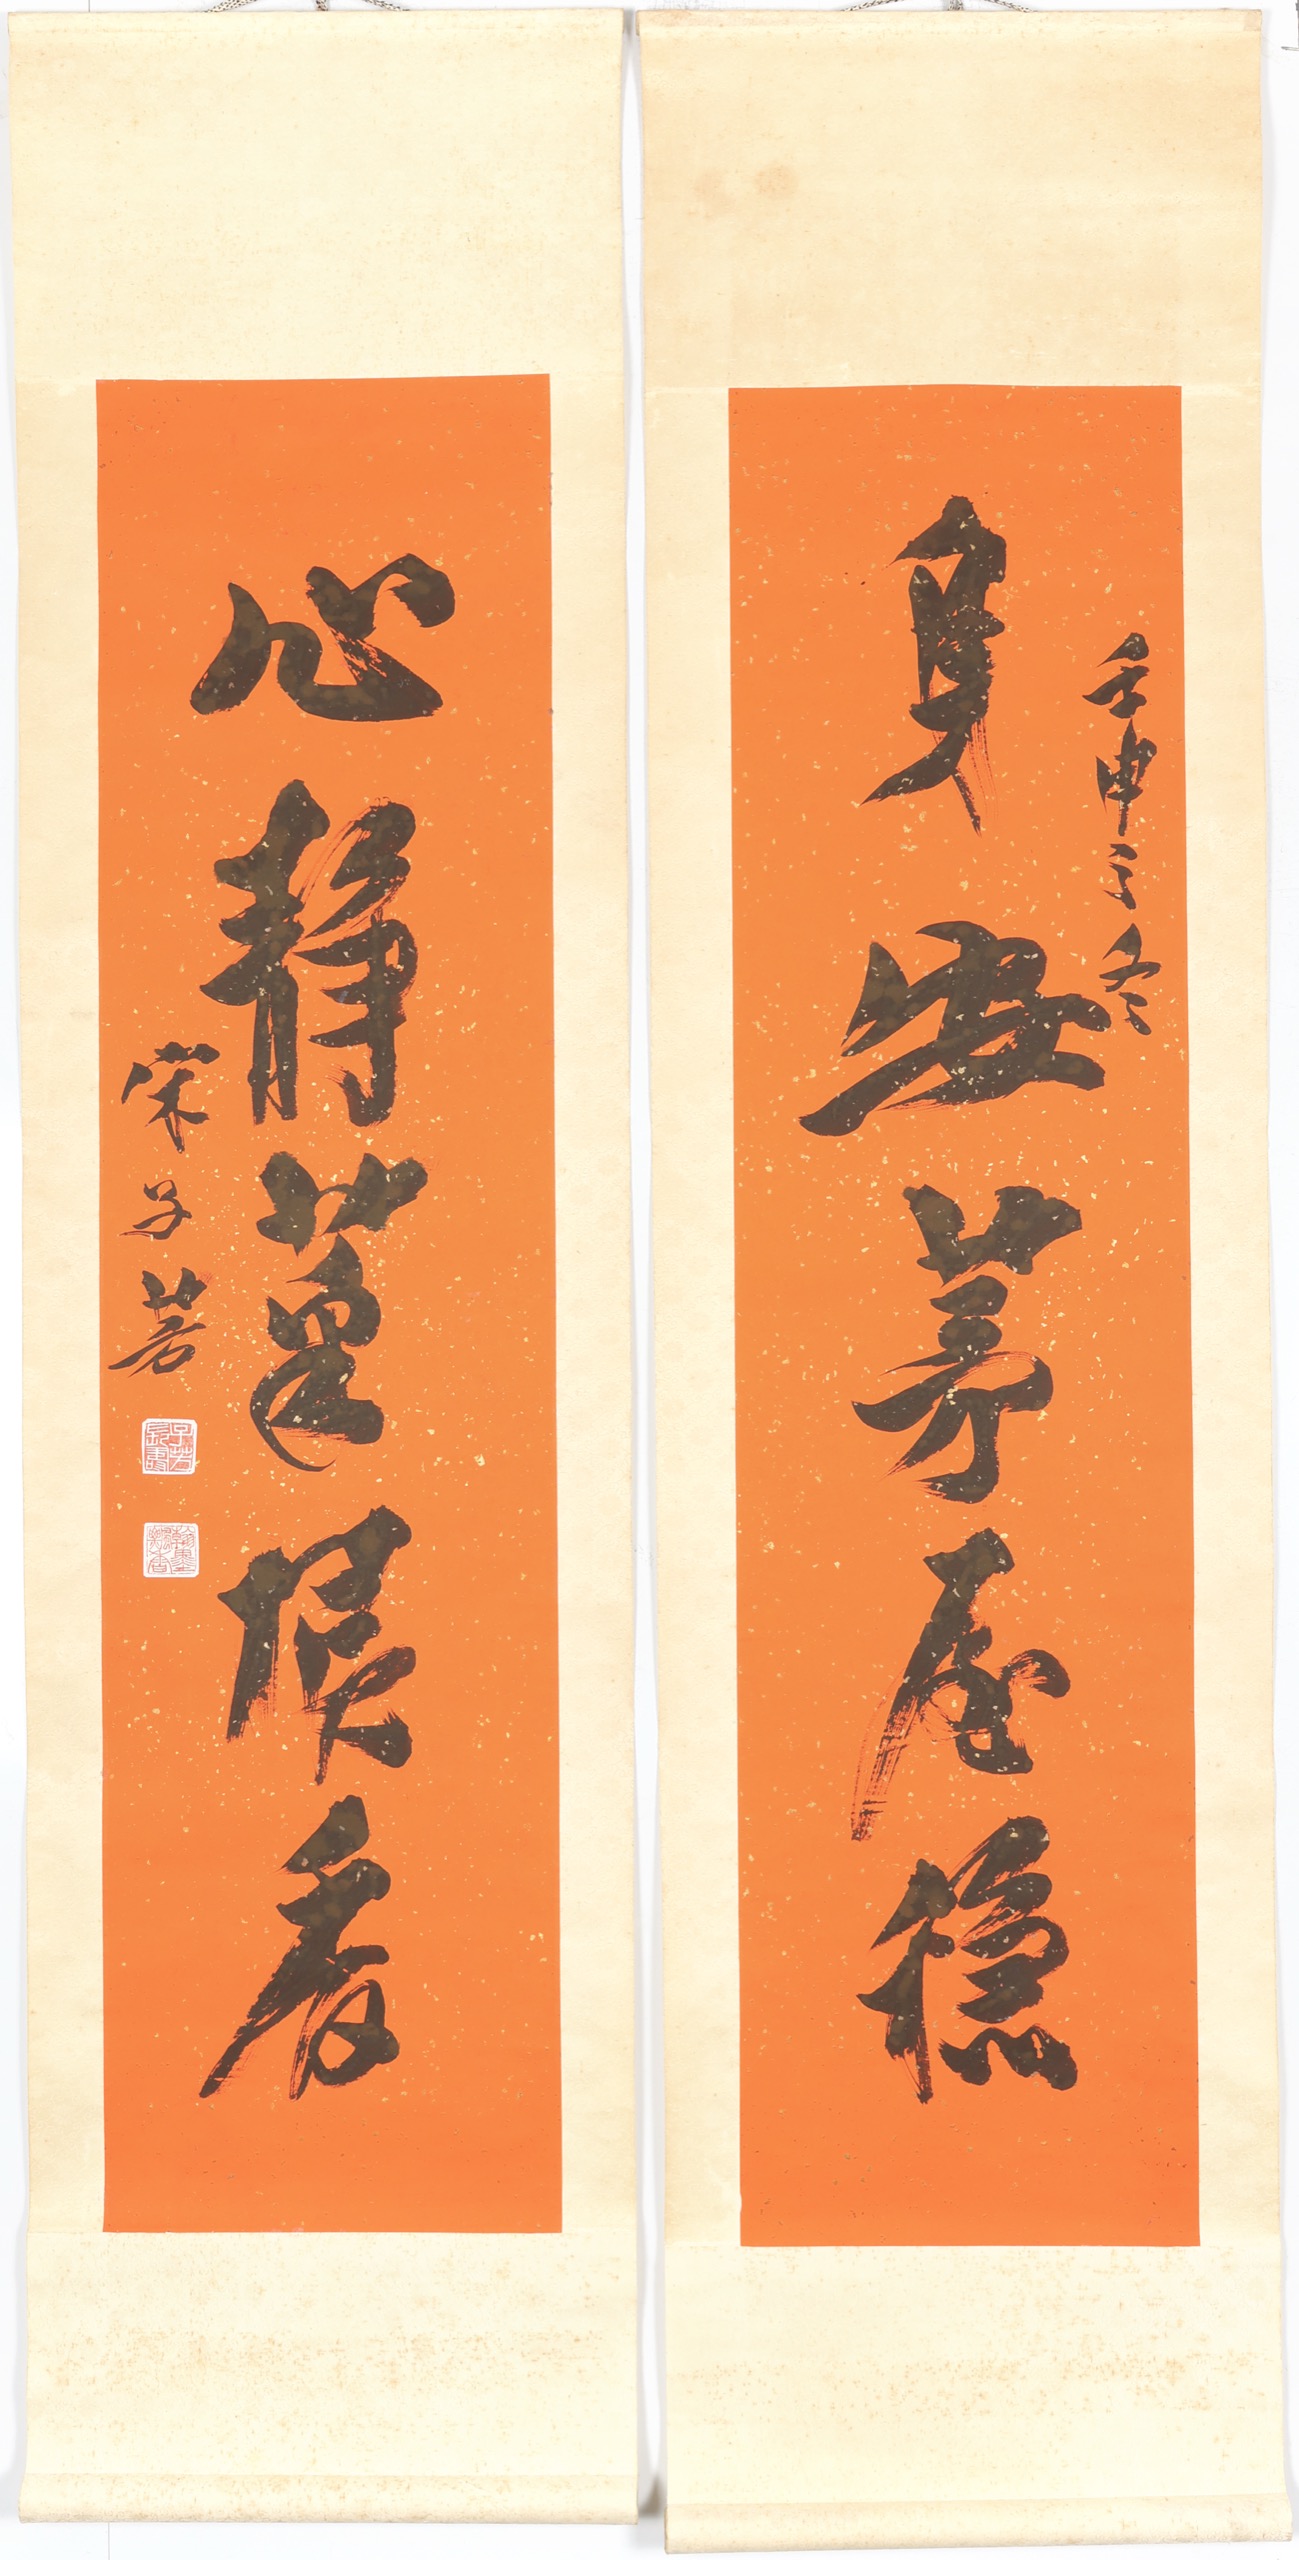 壬申之冬
身安茅屋穩
心靜菜根香
宋子芳